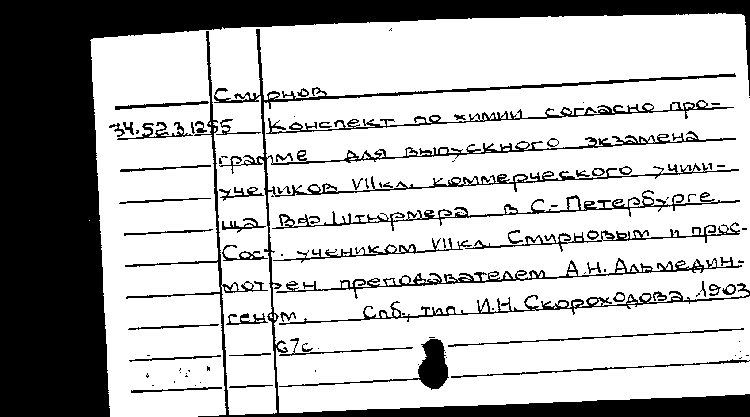 Смирнов
34.52.3.1255 Конспект по химии согласно про-
грамме для выпускного экзамена
учеников VII кл. коммерческого учили-
ща В.Ф. Штюрмера в С-Петербурге.
Сост. учеником VII кл. Смирновым и прос-
мотрен преподавателем А.Н. Альмедин-
геном. Спб., тип. И.Н. Скороходова, 1903
67с.